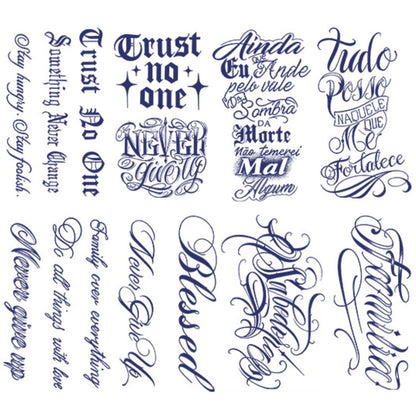 Stay hungry. Stay foolish.
Something Never Change
Trust No One
Trust
no
one
NEVER
give up
Ainda
Eu que Ande
pelo vale
Sombra
DA
Morte
não temerei
Mal
Algum
Tudo
Posso
NAQUELE
QUE
Me
Fortalece
Never give up
Do all things with love
Family over everything
Never Give Up
Blessed
Familia